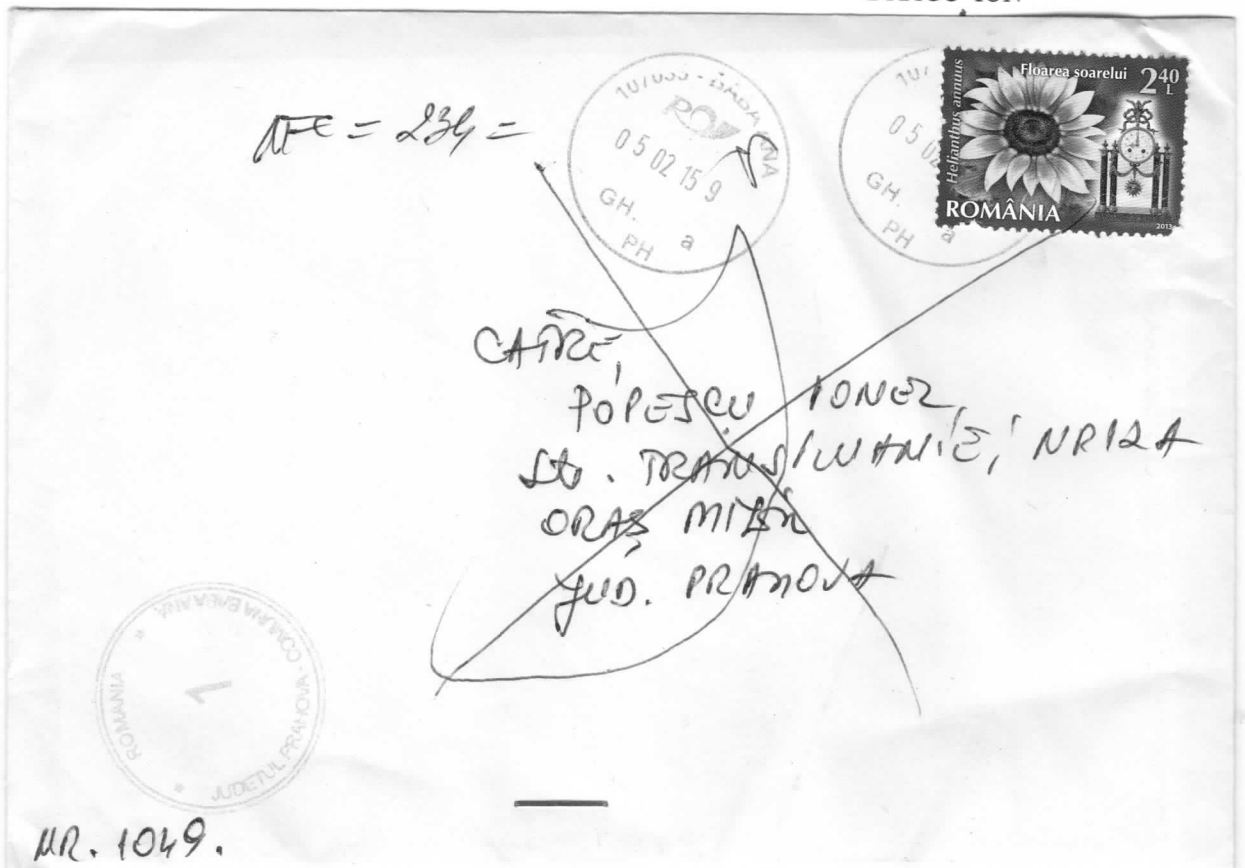 = 234 =
107035 - BABA ANA
05 02 15 9
GH. a
PH
107
05 02
GH. a
PH
Helianthus annuus
Floarea soarelui 2 40 L
ROMÂNIA
2013
CATRE,
POPESCU IONEL,
Str. TRANSILVANIEI, NR 12A
ORAȘ MIZIL
JUD. PRAHOVA
ROMANIA * JUDETUL PRAHOVA - COMUNA BABA ANA *
1
NR. 1049.